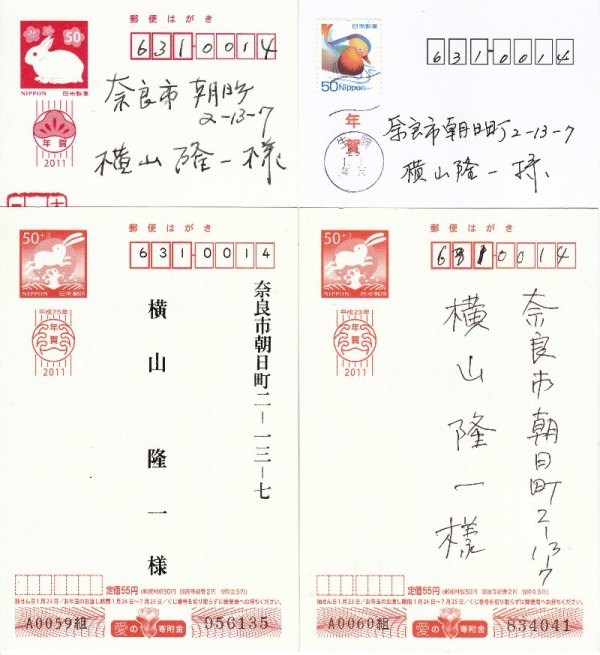 郵便はがき
50
NIPPON 日本郵便
631-0014
年賀
2011
奈良市 朝日町
2-13-7
横山隆一様
日本郵便
50 Nippon
631-0014
年
賀
奈良市朝日町2-13-7
横山隆一様
郵便はがき
50+3
NIPPON 日本郵便
6310014
平成23年
年賀
2011
奈良市朝日町二-一三-七
横山 隆一様
定価55円 (郵便料金50円 国庫寄金2円 寄附金3円)
A0059組
愛の寄附金
956135
郵便はがき
50+3
NIPPON 日本郵便
6310014
平成23年
年賀
2011
奈良市朝日町2-13-7
横山隆一様
定価55円
A0060組
愛の寄附金
834041